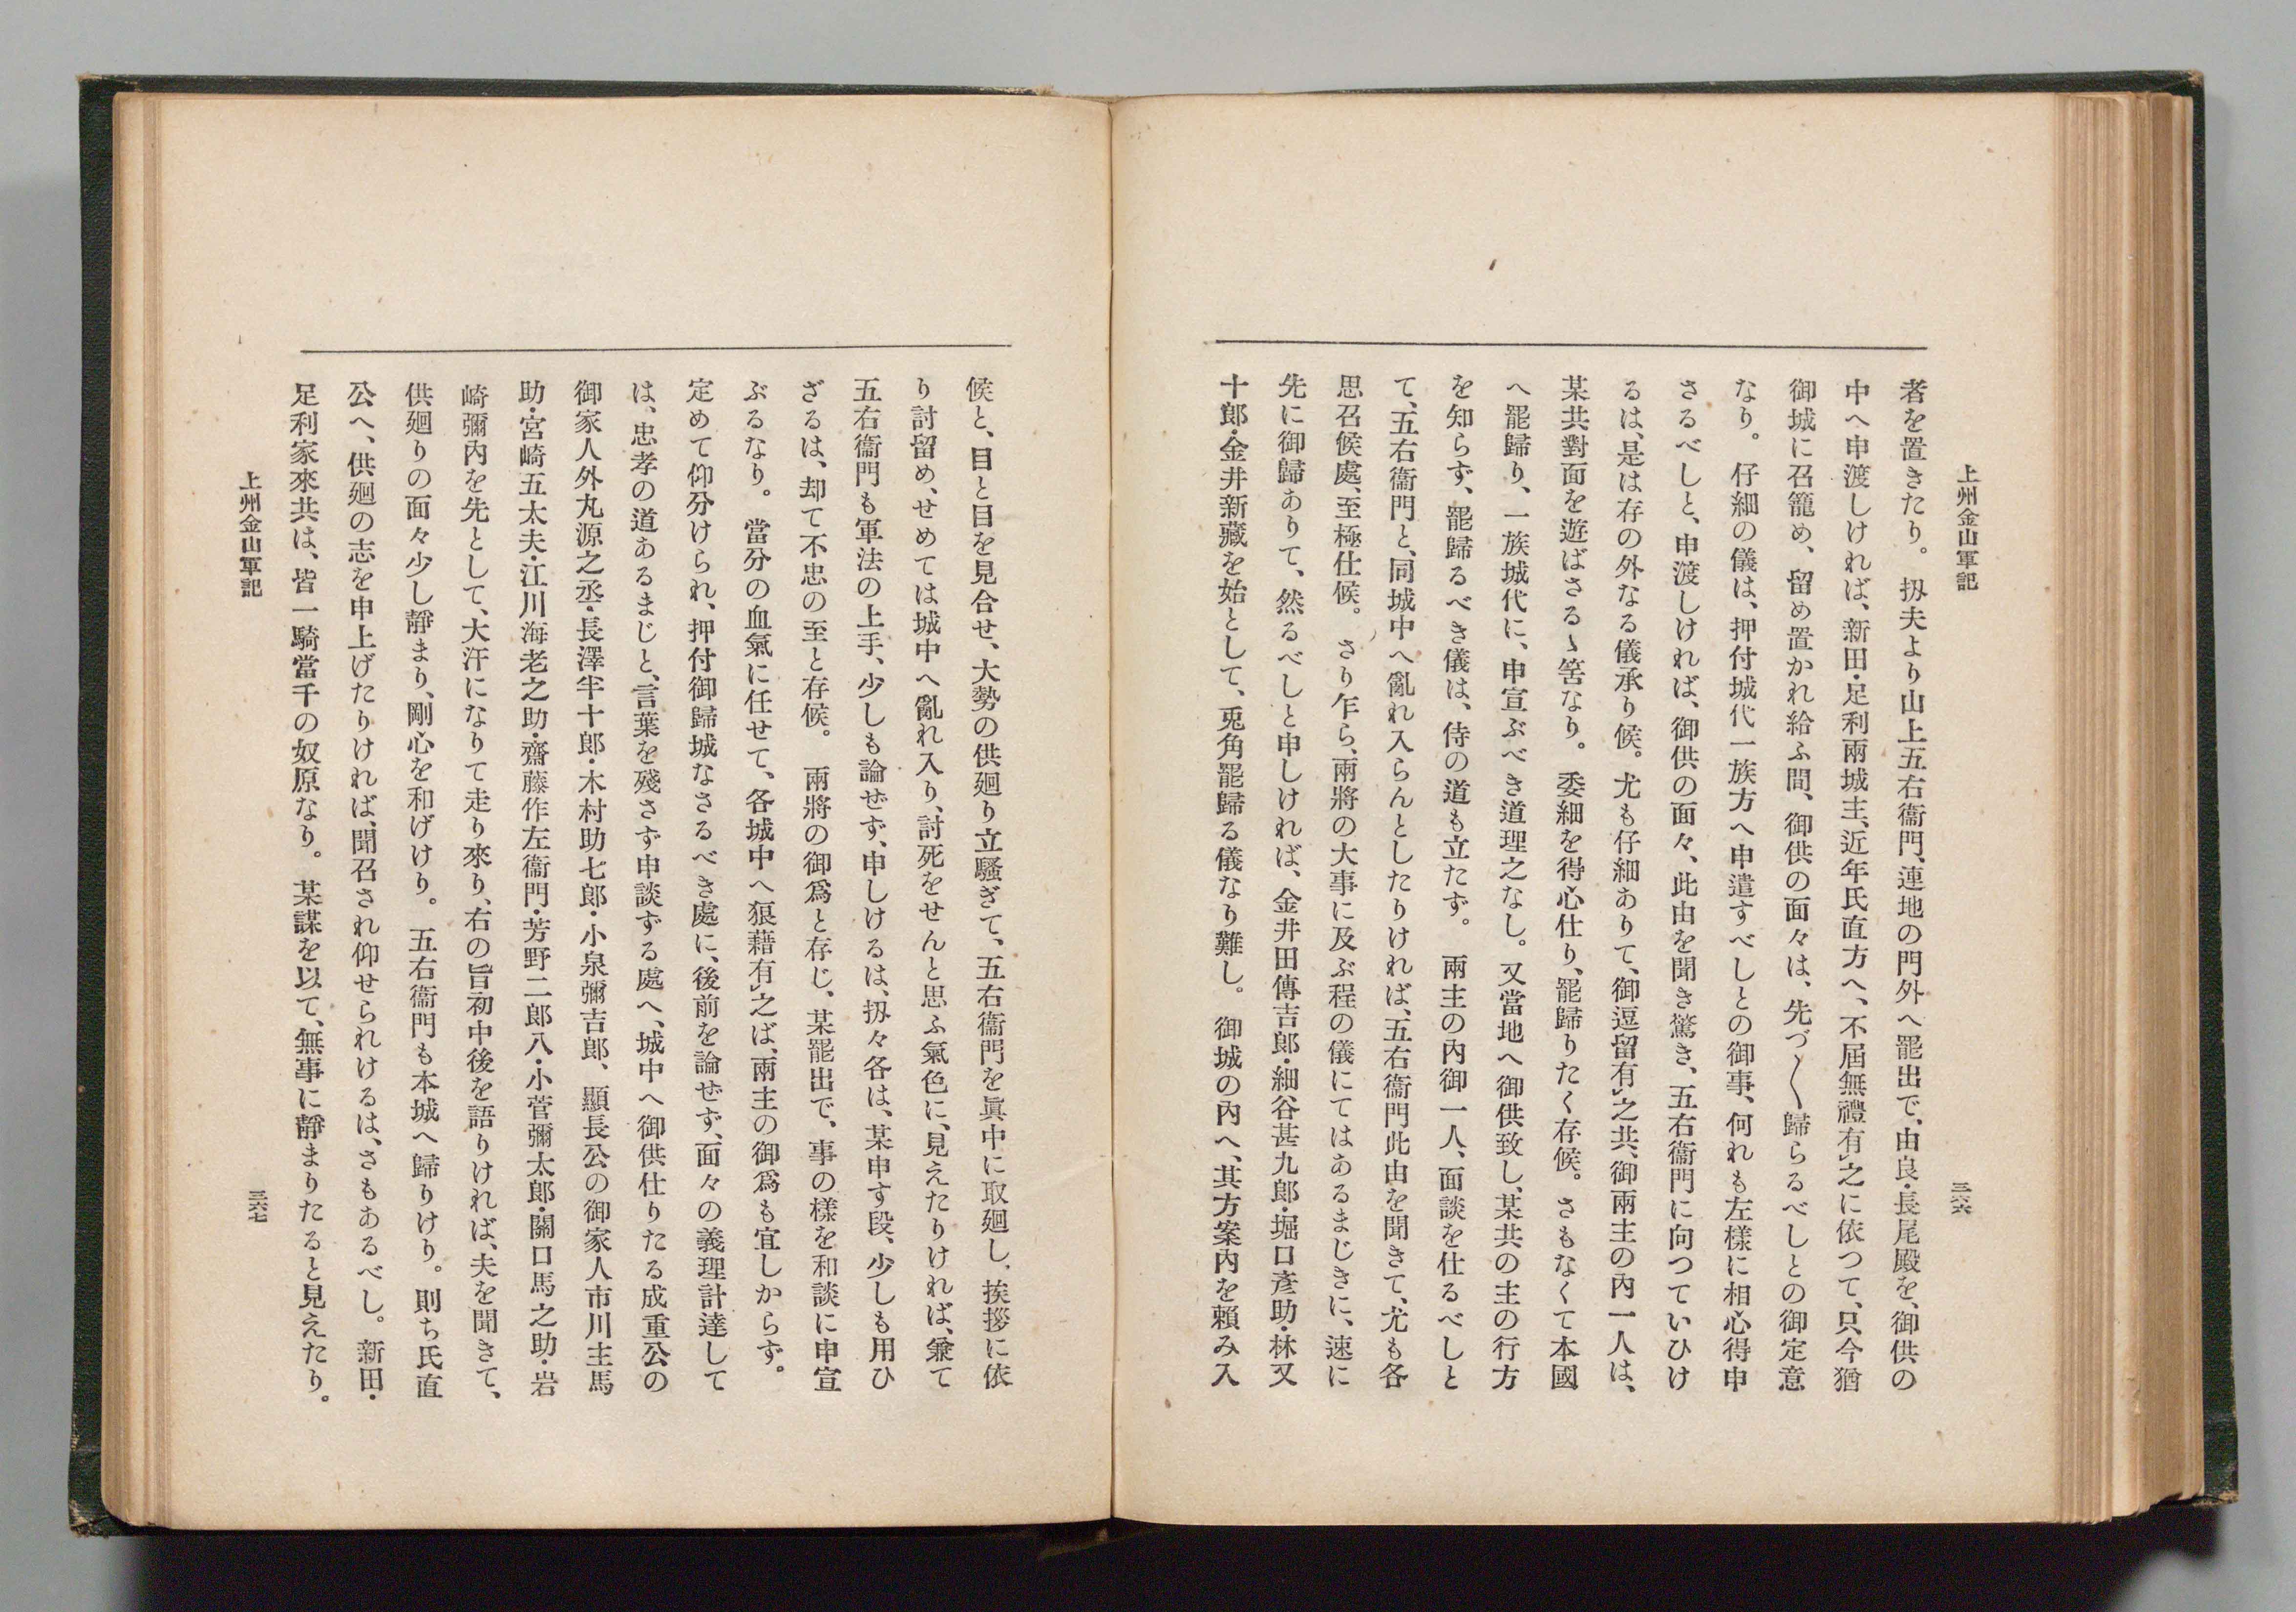 上州金山軍記
三六六
者を置きたり。扨夫より山上五右衞門、連地の門外へ罷出で、由良・長尾殿を、御供の
中へ申渡しければ、新田・足利兩城主、近年氏直方へ、不屆無禮有㆑之に依つて、只今猶
御城に召籠め、留め置かれ給ふ間、御供の面々は、先づ〳〵歸らるべしとの御定意
なり。仔細の儀は、押付城代一族方へ申遣すべしとの御事、何れも左樣に相心得申
さるべしと、申渡しければ、御供の面々、此由を聞き驚き、五右衞門に向つていひけ
るは、是は存の外なる儀承り候。尤も仔細ありて、御逗留有㆑之共、御兩主の內一人は、
某共對面を遊ばさるゝ筈なり。委細を得心仕り、罷歸りたく存候。さもなくて本國
へ罷歸り、一族城代に、申宣ぶべき道理之なし。又當地へ御供致し、某共の主の行方
を知らず、罷歸るべき儀は、侍の道も立たず。兩主の內御一人、面談を仕るべしと
て、五右衞門と、同城中へ亂れ入らんとしたりければ、五右衞門此由を聞きて、尤も各
思召候處、至極仕候。さり乍ら、兩將の大事に及ぶ程の儀にてはあるまじきに、速に
先に御歸ありて、然るべしと申しければ、金井田傳吉郎・細谷甚九郎・堀口彥助・林又
十郎・金井新藏を始として、兎角罷歸る儀なり難し。御城の內へ、其方案內を賴み入
候と、目と目を見合せ、大勢の供廻り立騷ぎて、五右衞門を眞中に取廻し、挨拶に依
り討留め、せめては城中へ亂れ入り、討死をせんと思ふ氣色に、見えたりければ、兼て
五右衞門も軍法の上手、少しも論ぜず、申しけるは、扨々各は、某申す段、少しも用ひ
ざるは、却て不忠の至と存候。兩將の御爲と存じ、某罷出で、事の樣を和談に申宣
ぶるなり。當分の血氣に任せて、各城中へ狼藉有㆑之ば、兩主の御爲も宜しからず。
定めて仰分けられ、押付御歸城なさるべき處に、後前を論ぜず、面々の義理計達して
は、忠孝の道あるまじと、言葉を殘さず申談ずる處へ、城中へ御供仕りたる成重公の
御家人外丸源之丞・長澤半十郎・木村助七郎・小泉彌吉郎、顯長公の御家人市川主馬
助・宮崎五太夫・江川海老之助・齋藤作左衞門・芳野二郎八・小菅彌太郎・關口馬之助・岩
崎彌內を先として、大汗になりて走り來り、右の旨初中後を語りければ、夫を聞きて、
供廻りの面々少し靜まり、剛心を和げけり。五右衞門も本城へ歸りけり。則ち氏直
公へ、供廻の志を申上げたりければ、聞召され仰せられけるは、さもあるべし。新田・
足利家來共は、皆一騎當千の奴原なり。某謀を以て、無事に靜まりたると見えたり。
上州金山軍記
三六七